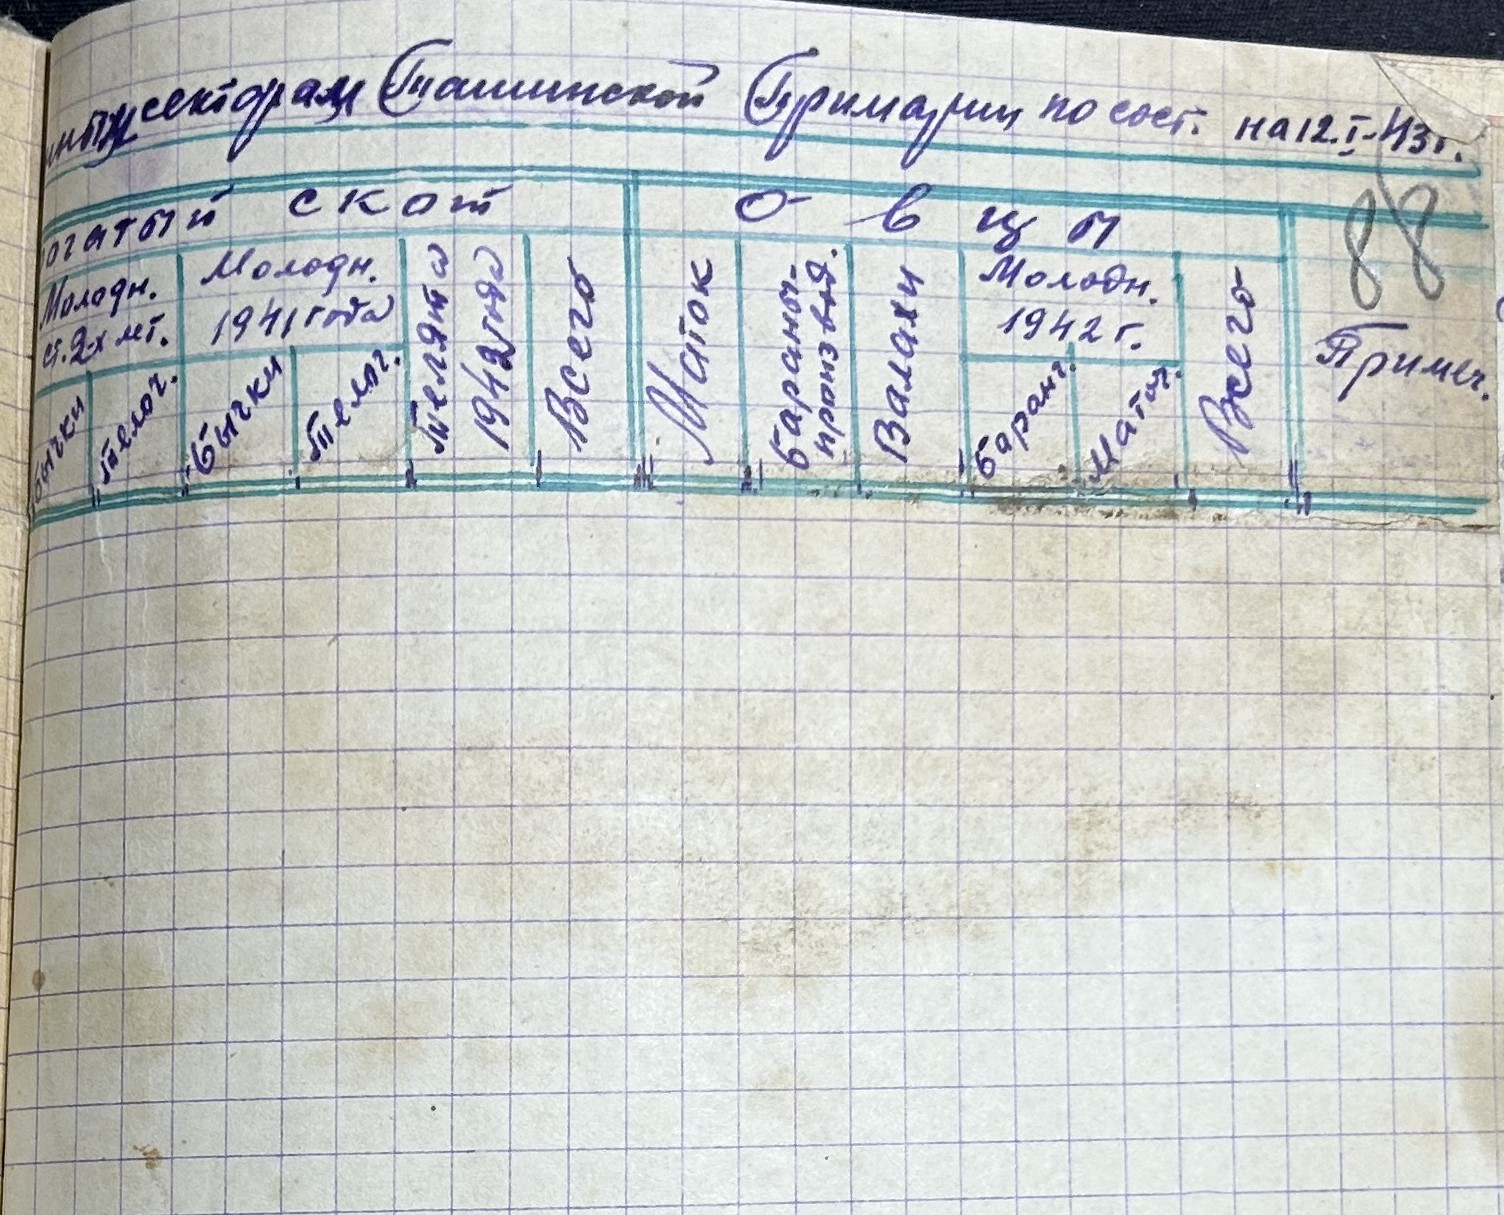 секторам Ташинской Примарии по сост. на 12.I-43г.
88
рогатый скот
овцы
Молодн. ст. 2-х лет.
Молодн. 1941 года
Телята 1942 года
Всего
Маток
Бараны-производ.
Валахи
Молодн. 1942 г.
Всего
Примеч.
Бычки
Телоч.
Бычки
Телоч.
Баранч.
Маточ.